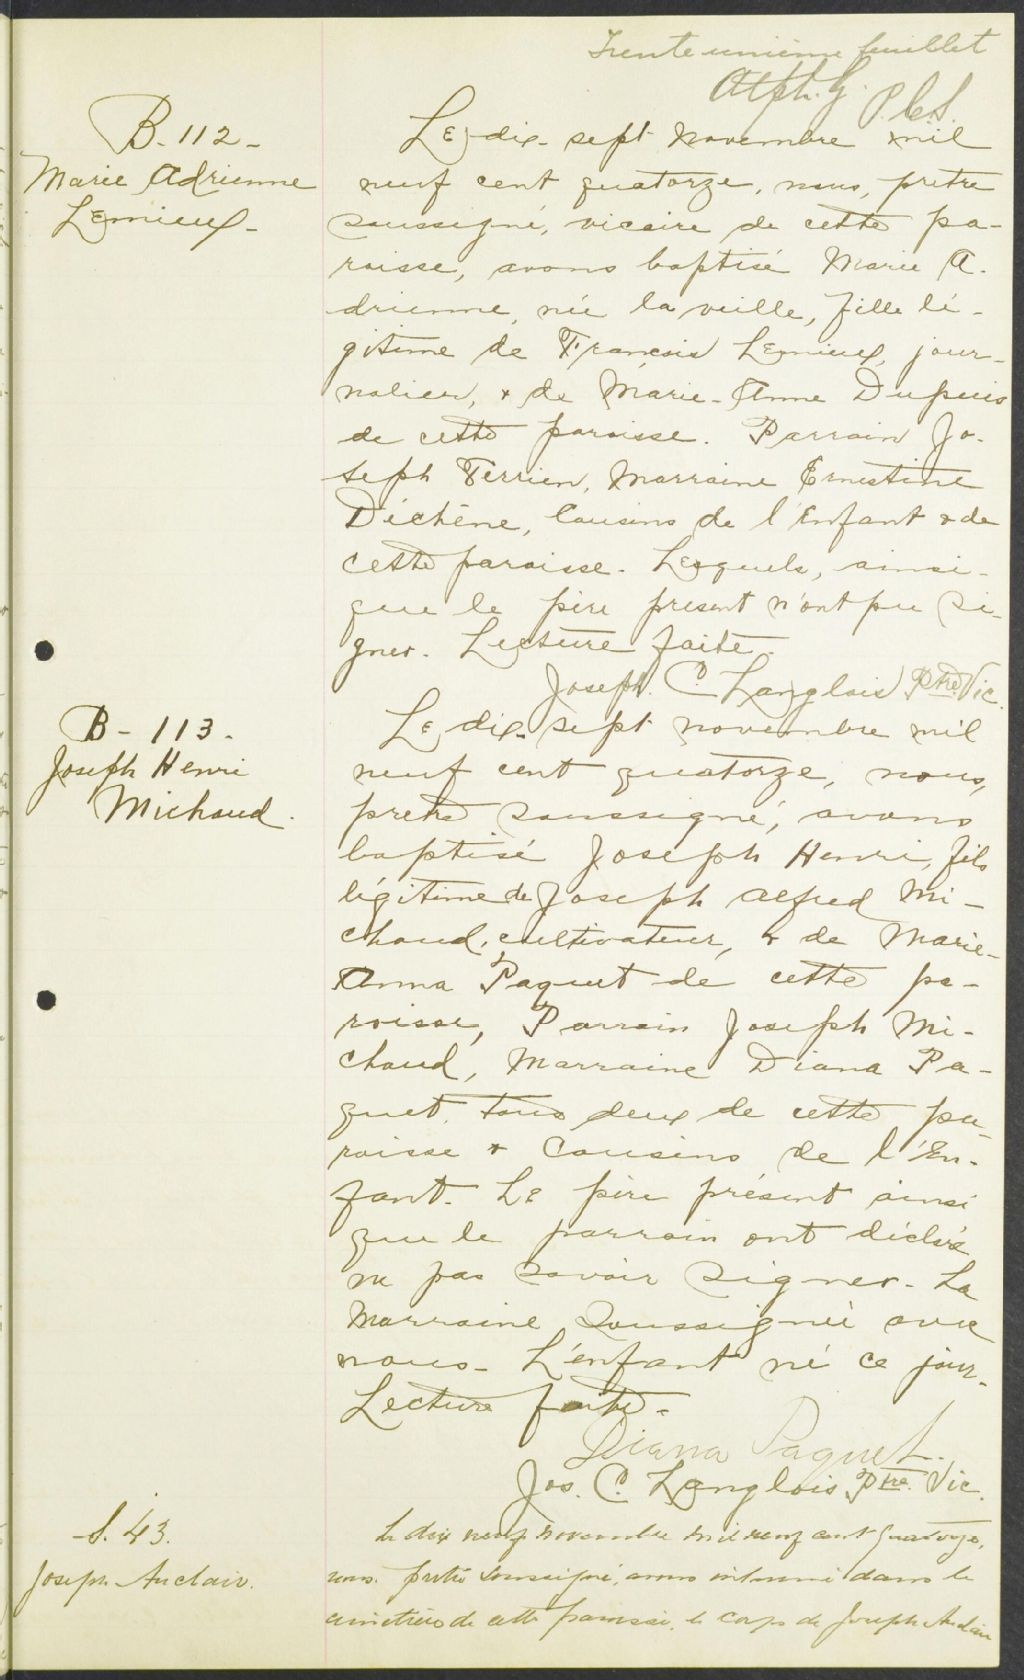 Trente unième feuillet
Alph. G. P.C.S.
B-112-
Marie Adrienne
Lemieux-
Le dix-sept novembre mil
neuf cent quatorze, nous, prêtre
soussigné, vicaire de cette pa-
roisse, avons baptisé Marie A-
drienne, née la veille, fille lé-
gitime de François Lemieux, jour-
nalier, & de Marie-Anne Dupuis
de cette paroisse. Parrain Jo-
seph Terrien, Marraine Ernestine
Dechêne, Cousins de l'Enfant & de
cette paroisse. Lesquels, ainsi-
que le père présent n'ont pu Si-
gner. Lecture faite.
Joseph. C. Langlois Ptre Vic.
B-113-
Joseph Henri
Michaud.
Le dix-sept novembre mil
neuf cent quatorze, nous,
prêtre soussigné, avons
baptisé Joseph Henri, fils
légitime de Joseph Alfred Mi-
chaud, cultivateur, & de Marie-
Anna Paquet de cette pa-
roisse, Parrain Joseph Mi-
chaud, Marraine Diana Pa-
quet, tous deux de cette pa-
roisse & Cousins de l'En-
fant. Le père présent ainsi
que le parrain ont déclaré
ne pas savoir signer. La
Marraine soussignée avec
nous- L'enfant né ce jour.
Lecture faite.
Diana Paquet.
Jos. C. Langlois Ptre. Vic.
S. 43.
Joseph Auclair.
Le dix neuf novembre mil neuf cent quatorze,
nous prêtre soussigné, avons inhumé dans le
cimetière de cette paroisse, le corps de Joseph Auclair